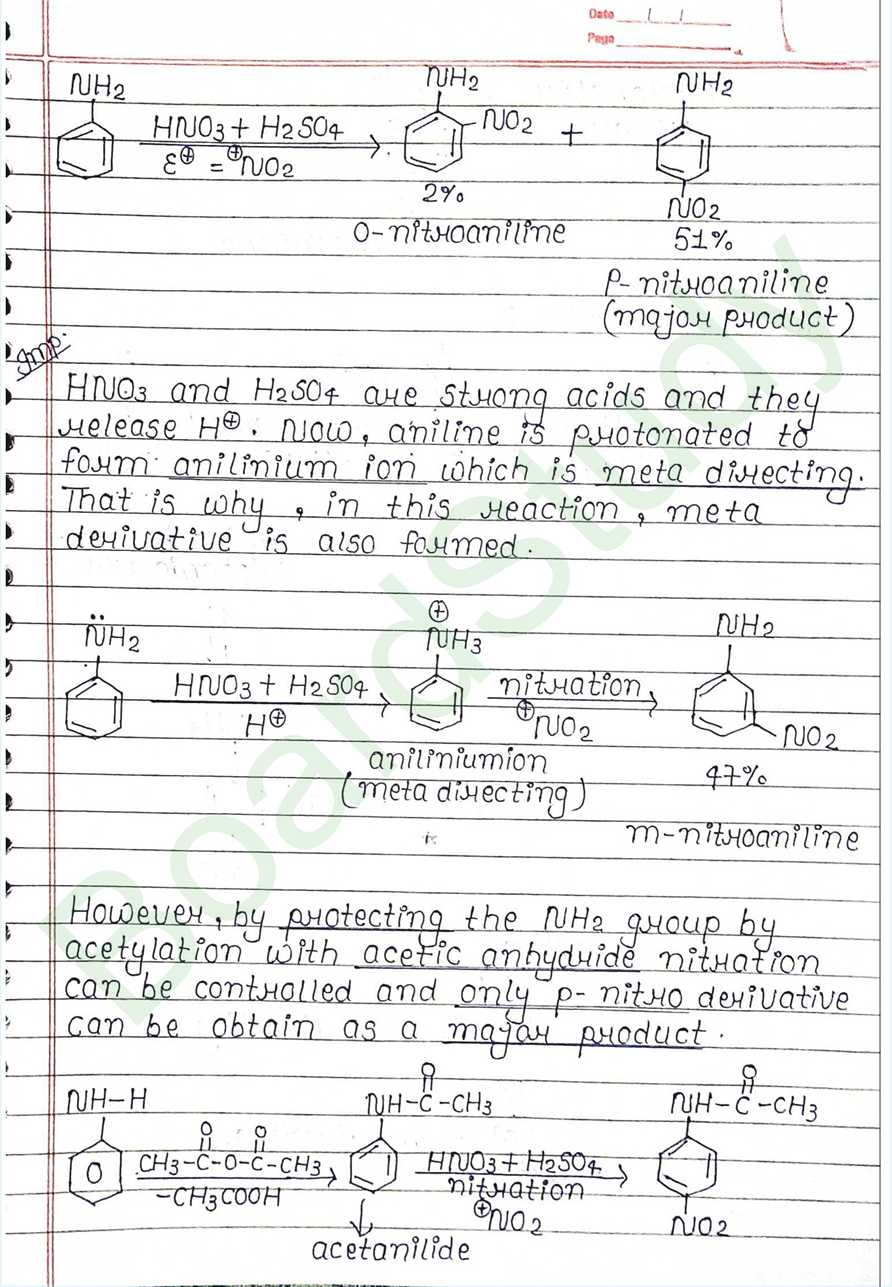 Date / /
Page
NH2 NH2 NH2
HNO3 + H2SO4 NO2 +
Ɛ⊕ = ⊕NO2
2% NO2
O-nitroaniline 51%
P-nitroaniline
(major product)
Imp.
HNO3 and H2SO4 are strong acids and they
release H⊕. Now, aniline is protonated to
form anilinium ion which is meta directing.
That is why, in this reaction, meta
derivative is also formed.
⊕
N̈H2 NH3 NH2
HNO3 + H2SO4 nitration
H⊕ ⊕NO2 NO2
aniliniumion 47%
(meta directing)
m-nitroaniline
However, by protecting the NH2 group by
acetylation with acetic anhydride nitration
can be controlled and only p-nitro derivative
can be obtain as a major product.
O O
NH-H NH-C-CH3 NH-C-CH3
O O
CH3-C-O-C-CH3 HNO3 + H2SO4
-CH3COOH nitration
⊕NO2 NO2
acetanilide
BoardStudy